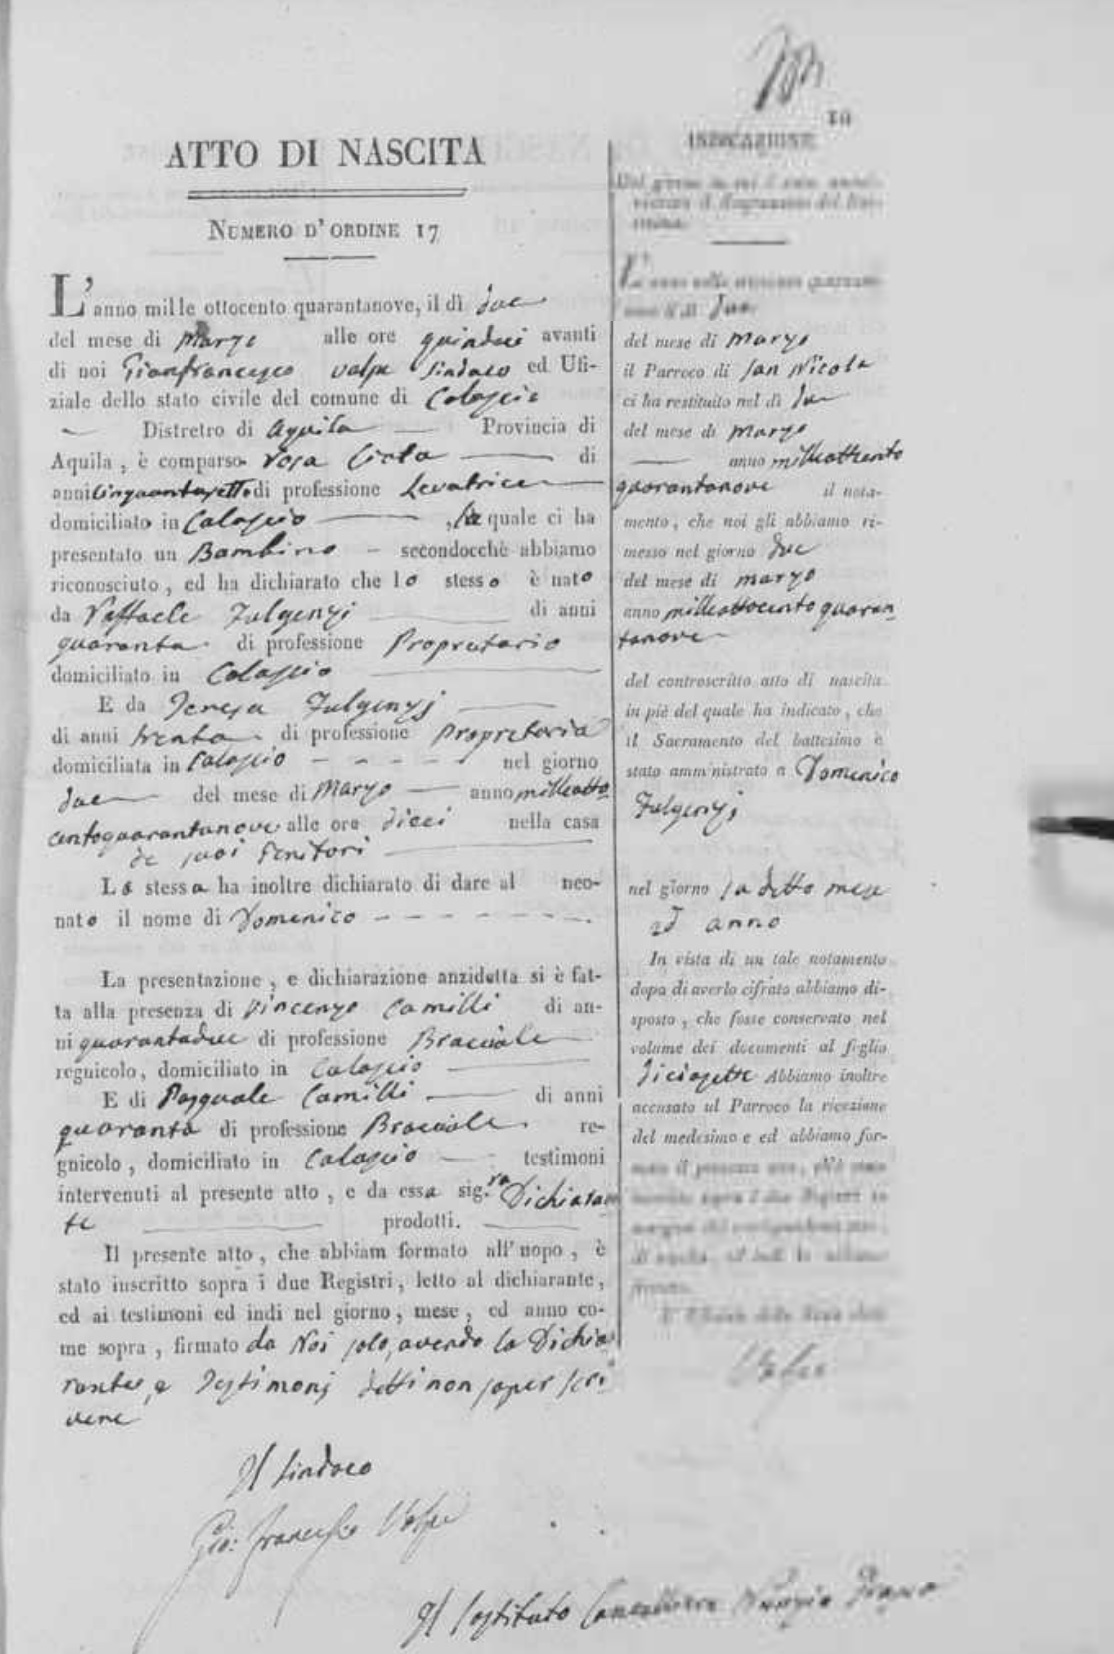 10
ATTO DI NASCITA
NUMERO D'ORDINE 17
L'anno mille ottocento quarantanove, il dì due
del mese di Marzo alle ore quindeci avanti
di noi Gianfrancesco Volpe Sindaco ed Ufi-
ziale dello stato civile del comune di Calascio
Distretro di Aquila Provincia di
Aquila, è comparso Rosa Ciota di
anni cinquantasette di professione Levatrice
domiciliato in Calascio, la quale ci ha
presentato un Bambino secondocchè abbiamo
riconosciuto, ed ha dichiarato che lo stesso è nato
da Raffaele Fulgenzj di anni
quaranta di professione Proprietario
domiciliato in Calascio
E da Teresa Fulgenzj
di anni trenta di professione Proprietaria
domiciliata in Calascio nel giorno
due del mese di Marzo anno milleotto
centoquarantanove alle ore dieci nella casa
de suoi Genitori
La stessa ha inoltre dichiarato di dare al neo-
nato il nome di Domenico
La presentazione, e dichiarazione anzidetta si è fat-
ta alla presenza di Vincenzo Camilli di an-
ni quarantadue di professione Bracciale
regnicolo, domiciliato in Calascio
E di Pasquale Camilli di anni
quaranta di professione Bracciale re-
gnicolo, domiciliato in Calascio testimoni
intervenuti al presente atto, e da essa sig.ra Dichiaran
te prodotti.
Il presente atto, che abbiam formato all'uopo, è
stato inscritto sopra i due Registri, letto al dichiarante,
ed ai testimoni ed indi nel giorno, mese, ed anno co-
me sopra, firmato da Noi solo, avendo la Dichia
rante, e Testimonj detti non saper scri
vere
Il Sindaco
Gio: Francesco Volpe
Il Sostituto Cancelliere Nunzio
INDICAZIONE
Del giorno in cui è stato
il Sagramento del Bat-
tesimo.
L'anno mille ottocento quaranta-
nove il dì due
del mese di Marzo
il Parroco di San Nicola
ci ha restituito nel dì due
del mese di Marzo
anno milleottocento
quarantanove il nota-
mento, che noi gli abbiamo ri-
messo nel giorno due
del mese di marzo
anno milleottocento quaran
tanove
del controscritto atto di nascita
in piè del quale ha indicato, che
il Sacramento del battesimo è
stato amministrato a Domenico
Fulgenzj
nel giorno sudetto mese
ed anno
In vista di un tale notamento
dopo di averlo cifrato abbiamo di-
sposto, che fosse conservato nel
volume dei documenti al foglio
diciasette Abbiamo inoltre
accusato al Parroco la ricezione
del medesimo e ed abbiamo for-
mato il presente atto, ch'è stato
inscritto sopra i due Registri in
Volpe